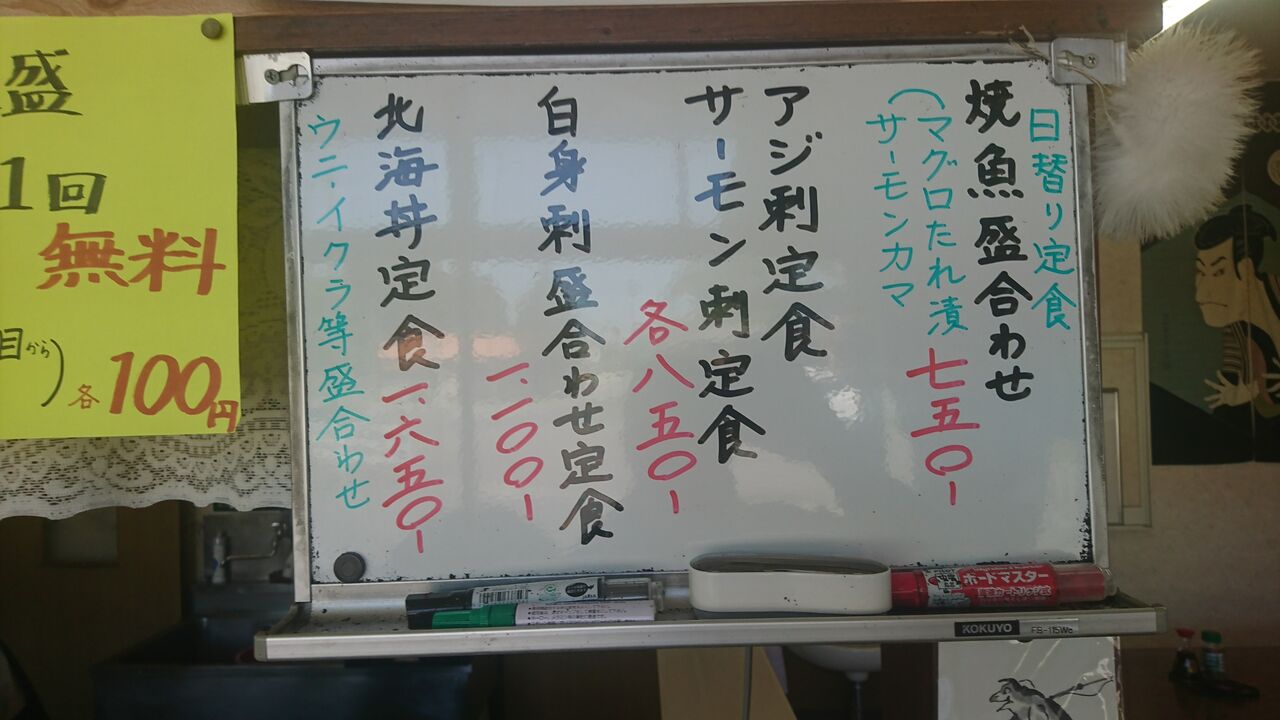 日替り定食
焼魚盛合わせ
(マグロたれ漬
サーモンカマ
七五〇-
アジ刺定食
サーモン刺定食
各八五〇-
白身刺盛合わせ定食
一、一〇〇-
北海丼定食
一、六五〇-
ウニ・イクラ等盛合わせ
盛
1回
無料
目から)
各100円
ボートマスター
KOKUYO
FB-115Wc